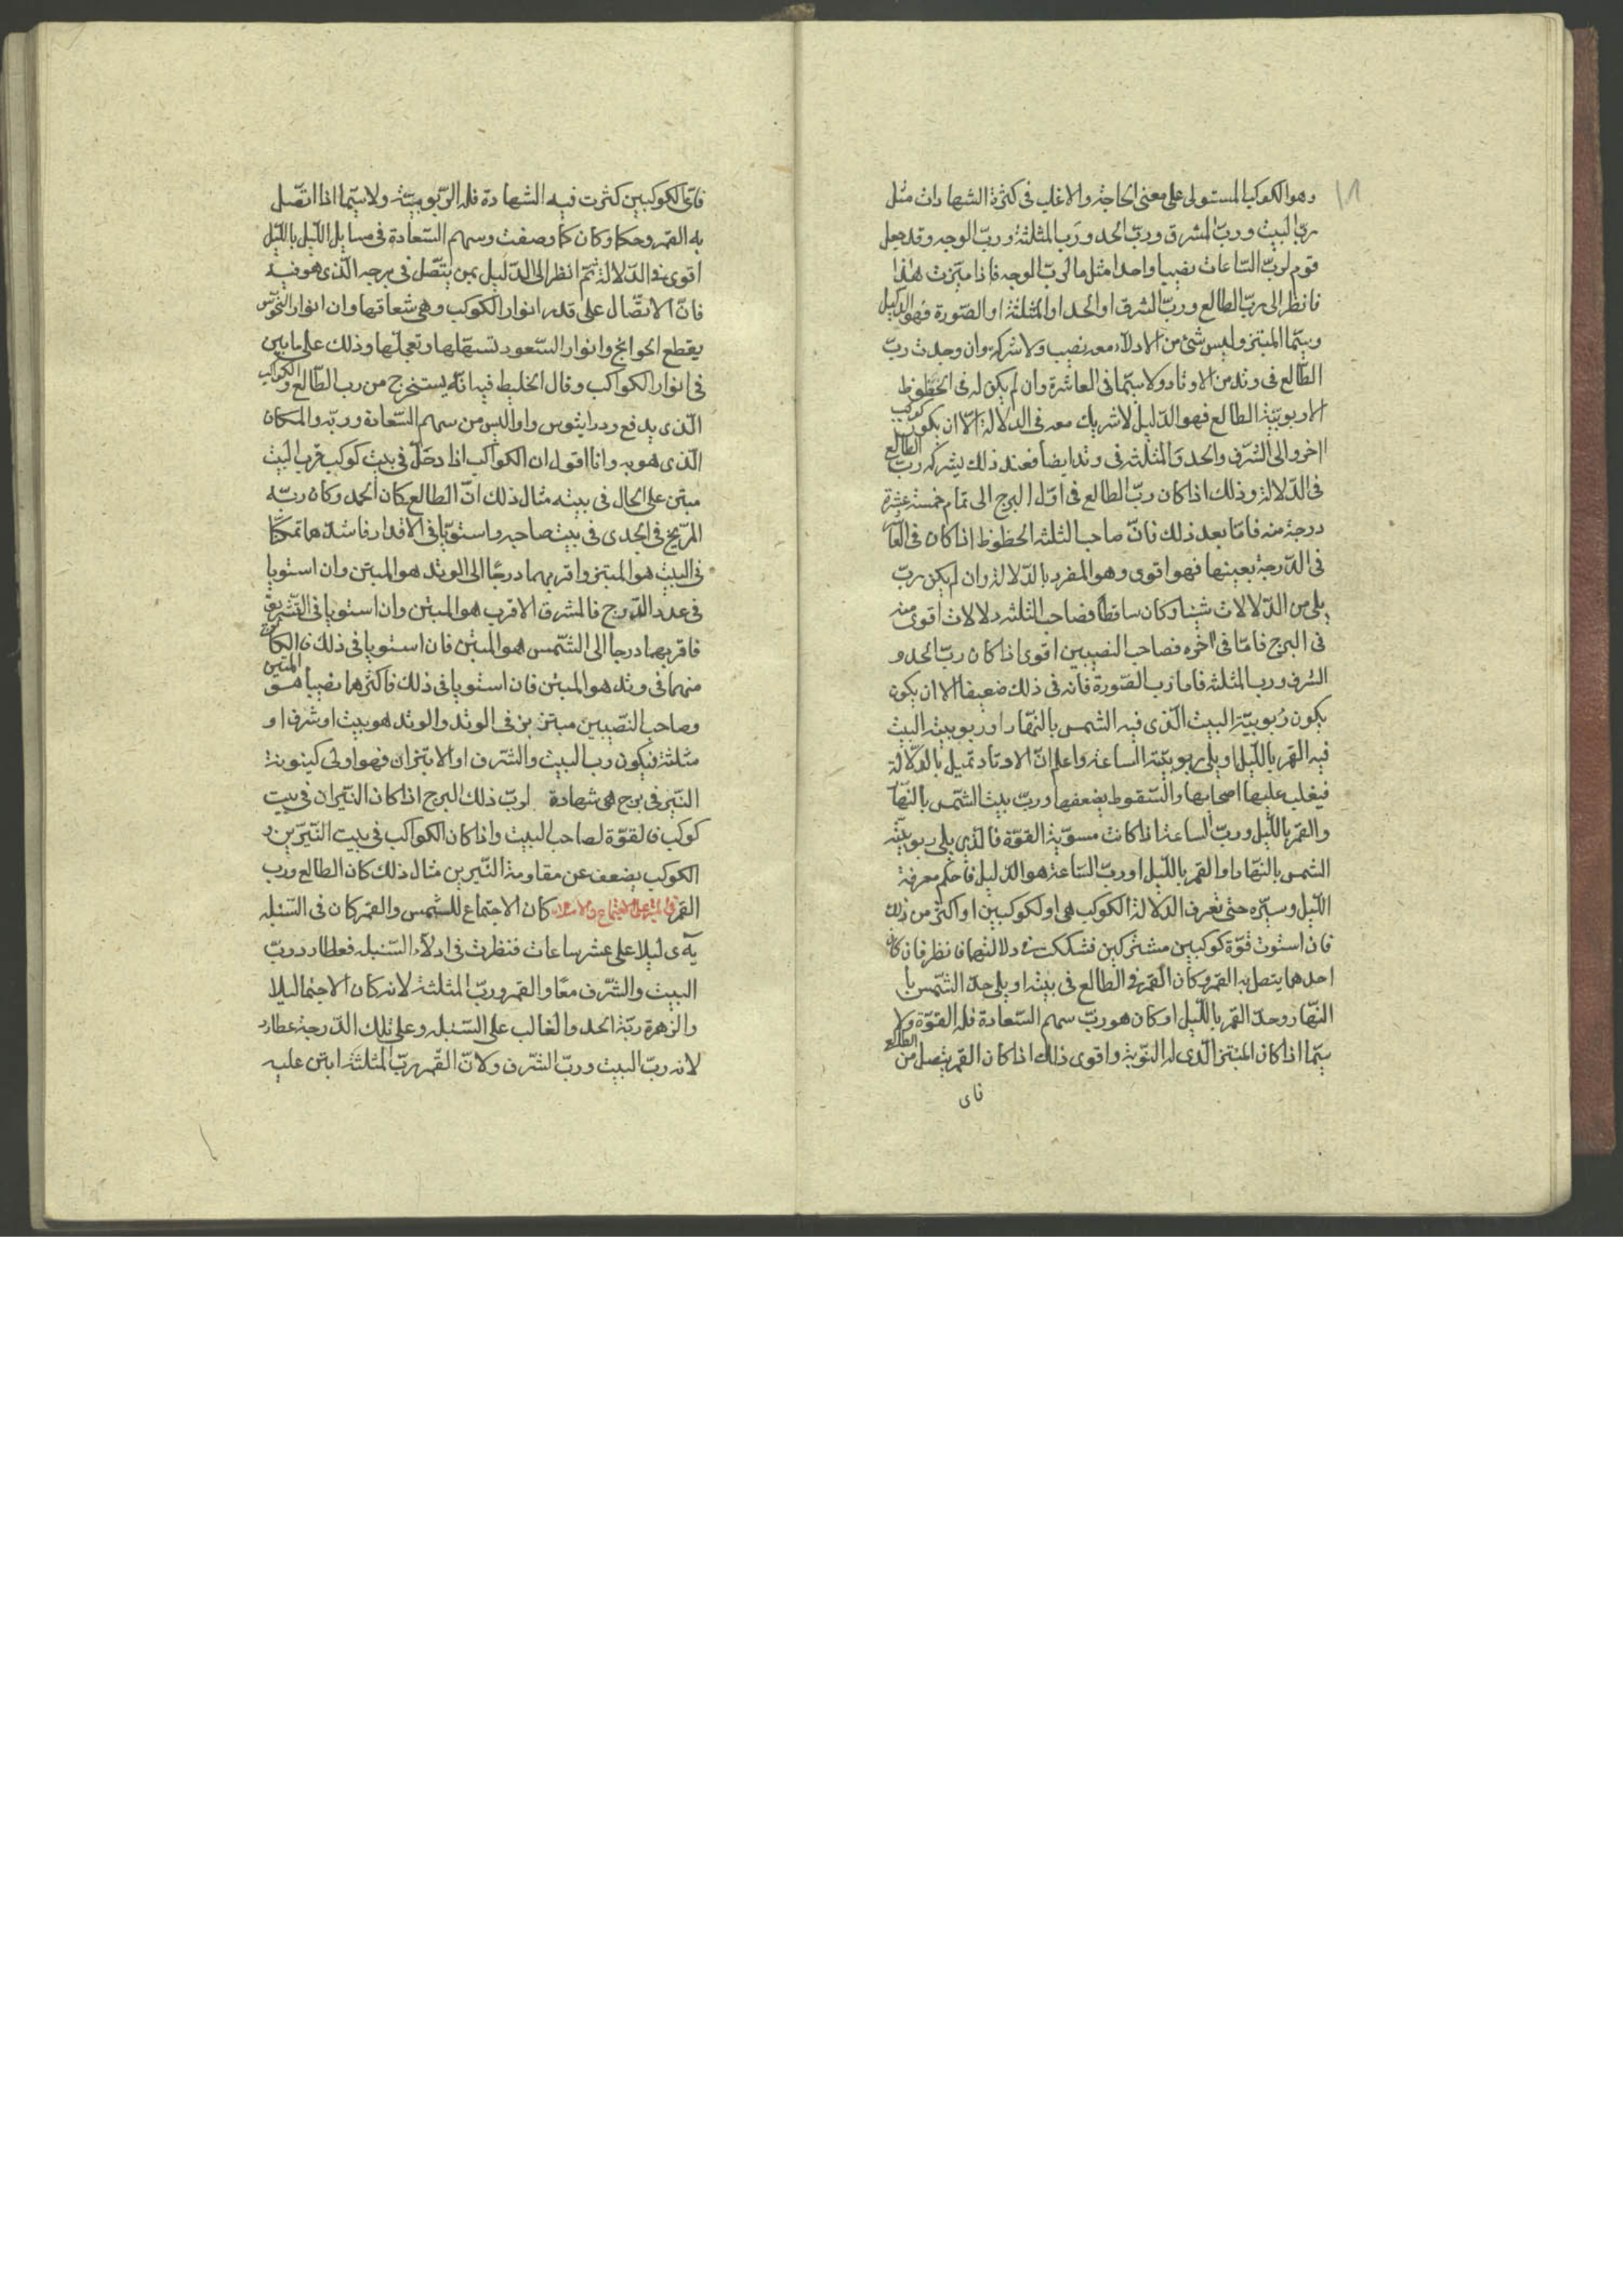 وهو الكوكب المستولى على معنى الحاجة والاغلب فى كثرة الشهادات مثل
ربّ البيت وربّ المشرق وربّ الحد ورَبّ المثلثة وربّ الوجه وقد جعل
قوم لربّ السّاعات نصيبا واحدا مثل ما لربّ الوجه فاذا ميّزت هذا
فانظر الى ربّ الطالع وربّ المشرق او الحد او المثلثة او الصّورة فهو الدّليل
وسيّما المبتز وليس شئ من الادلّاء معه نصيب ولا شركة وان وجدت ربّ
الطّالع فى وتد من الاوتاد ولا سيّما فى العاشرة وان لم يكن له فى الحظوظ
الا ربوبيّة الطالع فهو الدّليل لا شريك معه فى الدلالة الّا ان يكون كوكب
اخر والى الشرف والحد والمثلثه فى وتد ايضا فعند ذلك يشركه ربّ الطالع
فى الدّلالة وذلك اذا كان ربّ الطالع فى اوّل البرج الى تمام خمسة عشرة
درجة منه فامّا بعد ذلك فانّ صاحب الثلثه الحظوظ اذا كان فى العا
فى الدّرجة بعينها فهو اقوى وهو المفرد بالدّلالة وان لم يكن ربّ
يلى من الدّلالات شيئا وكان ساقطا فصاحب الثلثه دلالات اقوى منه
فى البرج فامّا فى اخره فصاحب النصيبين اقوى اذا كان ربّ الحد و
الشرف ورب المثلثه فاما رب الصّورة فانه فى ذلك ضعيف الا ان يكون
يكون رُبوبيّة البيت الّذى فيه الشمس بالنهار او ربوبيته البيت
فيه القمر باللّيل او يلى ربوبيّة الساعة واعلم انّ الاوتاد تميل بالدّلالة
فيغلب عليها اصحابها والسّقوط يضعفها وربّ بيت الشّمس بالنّها
والقمر باللّيل وربّ الساعة اذا كانت مسويّة القوّة فالذى يلى ربوبيّة
الشمس بالنّهار او القمر باللّيل او ربّ السّاعة هو الدّليل فاحكم معرفة
اللّيل وسيّره حتى تعرف الدّلالة الكوكب هى او لكوكبين او اكثر من ذلك
فان استوت قوّة كوكبين مشتركين فشككت فى دلالتهما فانظر فان كان
احدهما يتصل به القمر وكان القمر فى الطالع فى بيته او يلى حدّ الشّمس با
النهار وحدّ القمر باللّيل او كان هو ربّ سهم السّعادة فله القوّة ولا
سيّما اذا كان المبتز الّذى له النّوبة واقوى ذلك اذا كان القمر يتصل من الطالع
فاى
فاىّ الكوكبين كثرت فيه الشهادة فله الرّبوبيّة ولا سيّما اذا اتّصل
به القمر وحكا وكان كما وصفت وسهم السّعادة فى مسايل اللّيل باللّيل
اقوى فى الدّلالة ثمّ انظر الى الدّليل بمن يتّصل فى برجه الّذى هو فيه
فانّ الاتّصال على قدر انوار الكوكب وهى شعاقها وان انوار النّحوس
يقطع الحوائج وانوار السّعود تسهّلها وتعجلّها وذلك على ما بين
فى انوار الكواكب وقال الخليط فيها انّه يستخرج من رب الطّالع والكواكب
الّذى يدفع ودرايثوس واواليس من سهم السّعادة وربّه والمكان
الّذى هو به وانا اقول ان الكواكب اذا دخل فى بيت كوكب فرب البيت
مبتز على الحال فى بيته مثال ذلك انّ الطالع كان الحمد وكان ربّه
المرّيخ فى الجدى فى بيت صاحبه واستويا فى الاقدار فاشدّهما تمكّنا
فى البيت هو المبتز واقربهما درجًا الى الوتد هو المبتز وان استويا
فى عدد الدّرج فالمشرق الاقرب هو المبتز وان استويا فى التّشريق
فاقربهما درجا الى الشّمس هو المبتز فان استويا فى ذلك فالكا
منهما فى وتد هو المبتز فان استويا فى ذلك فاكثرهما نصيبا هو المبتز
وصاحب النّصيبين مبتز بن فى الوتد والوتد هو بيت او شرف او
مثلثة فيكون رب البيت والشّرف او الابتزان فهو اولى كينونة
النّير فى برج هى شهادة لربّ ذلك البرج اذا كان النّيران فى بيت
كوكب فالقوّة لصاحب البيت واذا كان الكواكب فى بيت النّيرّين و
الكوكب يضعف عن مقاومة النّيرين مثال ذلك كان الطالع ورب
القمر كان الاجتماع للشمس والقمر كان فى السّنبله
يه ى ليلا على عشر ساعات فنظرت فى ادلّاء السّنبله فعطارد ربّ
البيت والشّرف معًا والقمر وربّ المثلثة لانه كان الاجتما ليلا
والزهرة ربّة الحد والغالب على السّنبله وعلى تلك الدّرجة عطارد
لانه ربّ البيت وربّ الشّرف ولانّ القمر ربّ المثلثة ابتز عليه